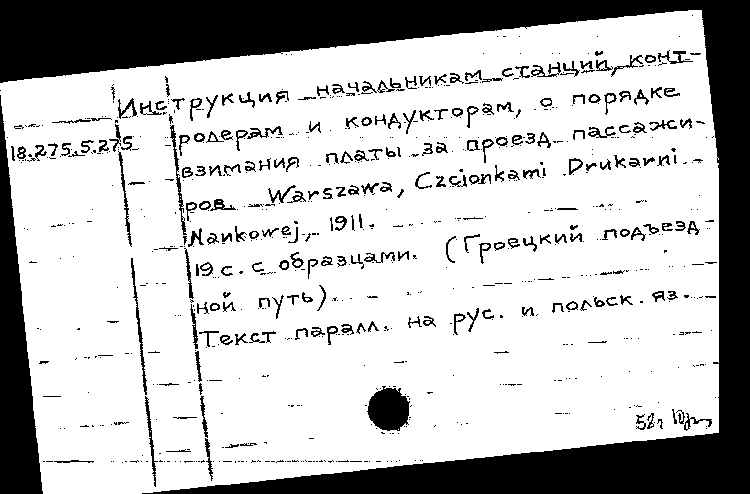 Инструкция начальникам станций, конт-
18.275.5.275 ролерам и кондукторам, о порядке
взимания платы за проезд пассажи-
ров. Warszawa, Czcionkami Drukarni
Nankowej, 1911.
19 с. с образцами. (Гроецкий подъезд-
ной путь).
Текст паралл. на рус. и польск. яз.
52г